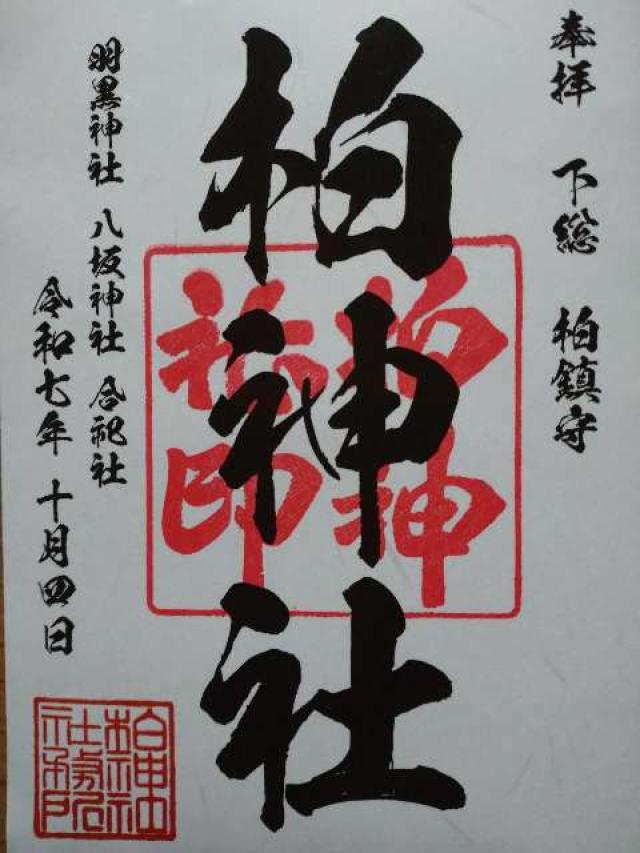 奉拝 下総 柏鎮守
柏神社
羽黒神社 八坂神社 合祀社
令和七年 十月四日
柏神
社印
柏神
社務所